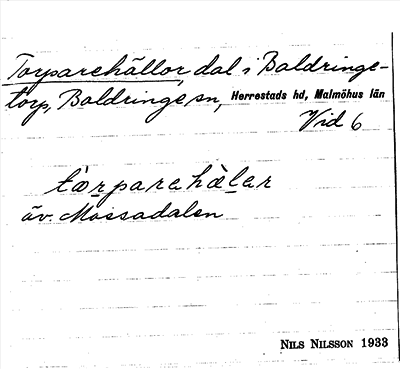 Torparehällor, dal i Baldringe-
torp, Baldringe sn, Herrestads hd, Malmöhus län
Vid 6
tòrparehὲlar
äv. Mossadalen
NILS NILSSON 1933